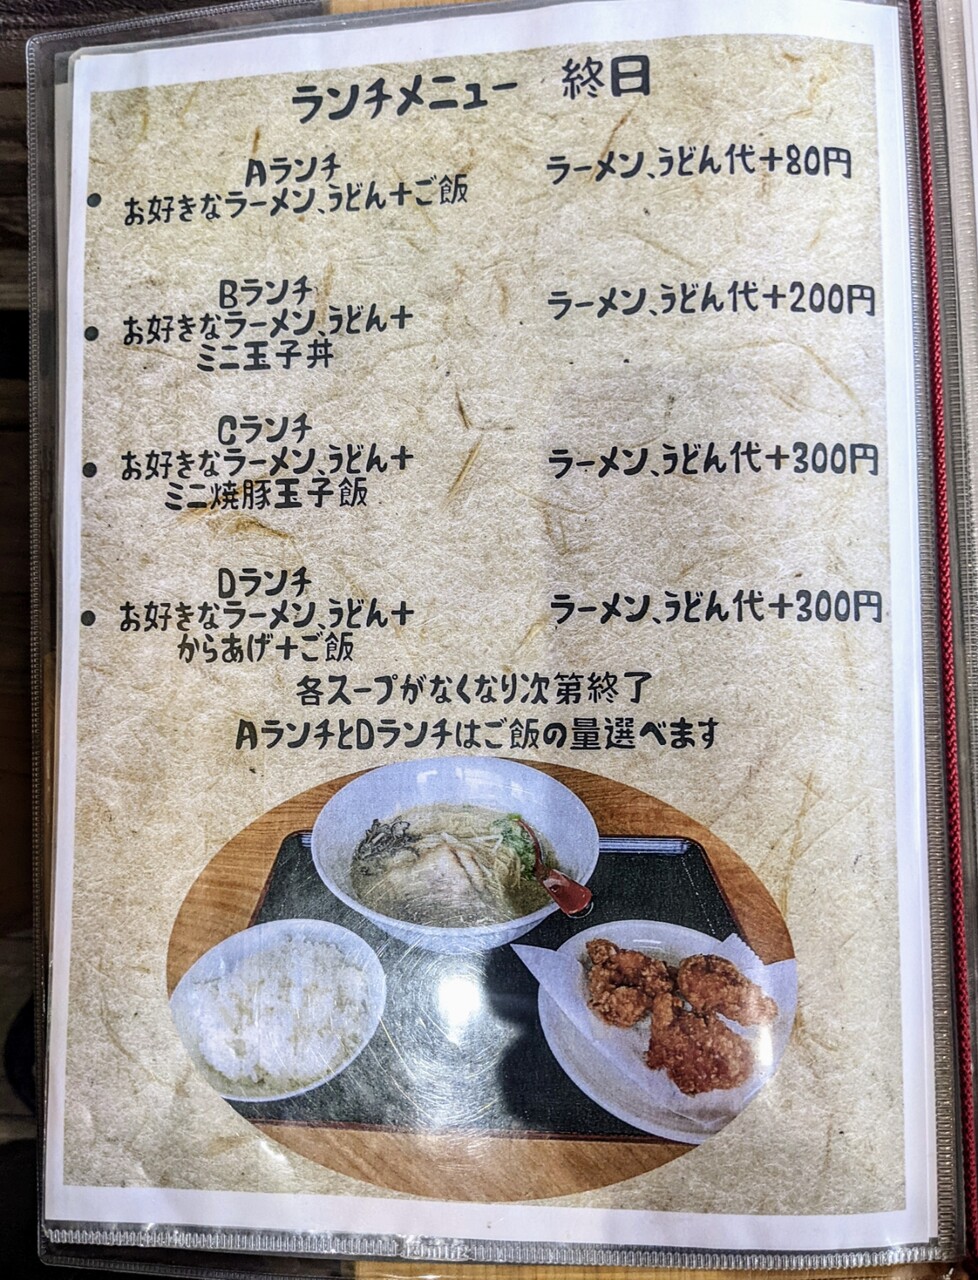 ランチメニュー　終日
Aランチ
・お好きなラーメン、うどん＋ご飯
ラーメン、うどん代＋80円
Bランチ
・お好きなラーメン、うどん＋
ミニ玉子丼
ラーメン、うどん代＋200円
Cランチ
・お好きなラーメン、うどん＋
ミニ焼豚玉子飯
ラーメン、うどん代＋300円
Dランチ
・お好きなラーメン、うどん＋
からあげ＋ご飯
ラーメン、うどん代＋300円
各スープがなくなり次第終了
AランチとDランチはご飯の量選べます